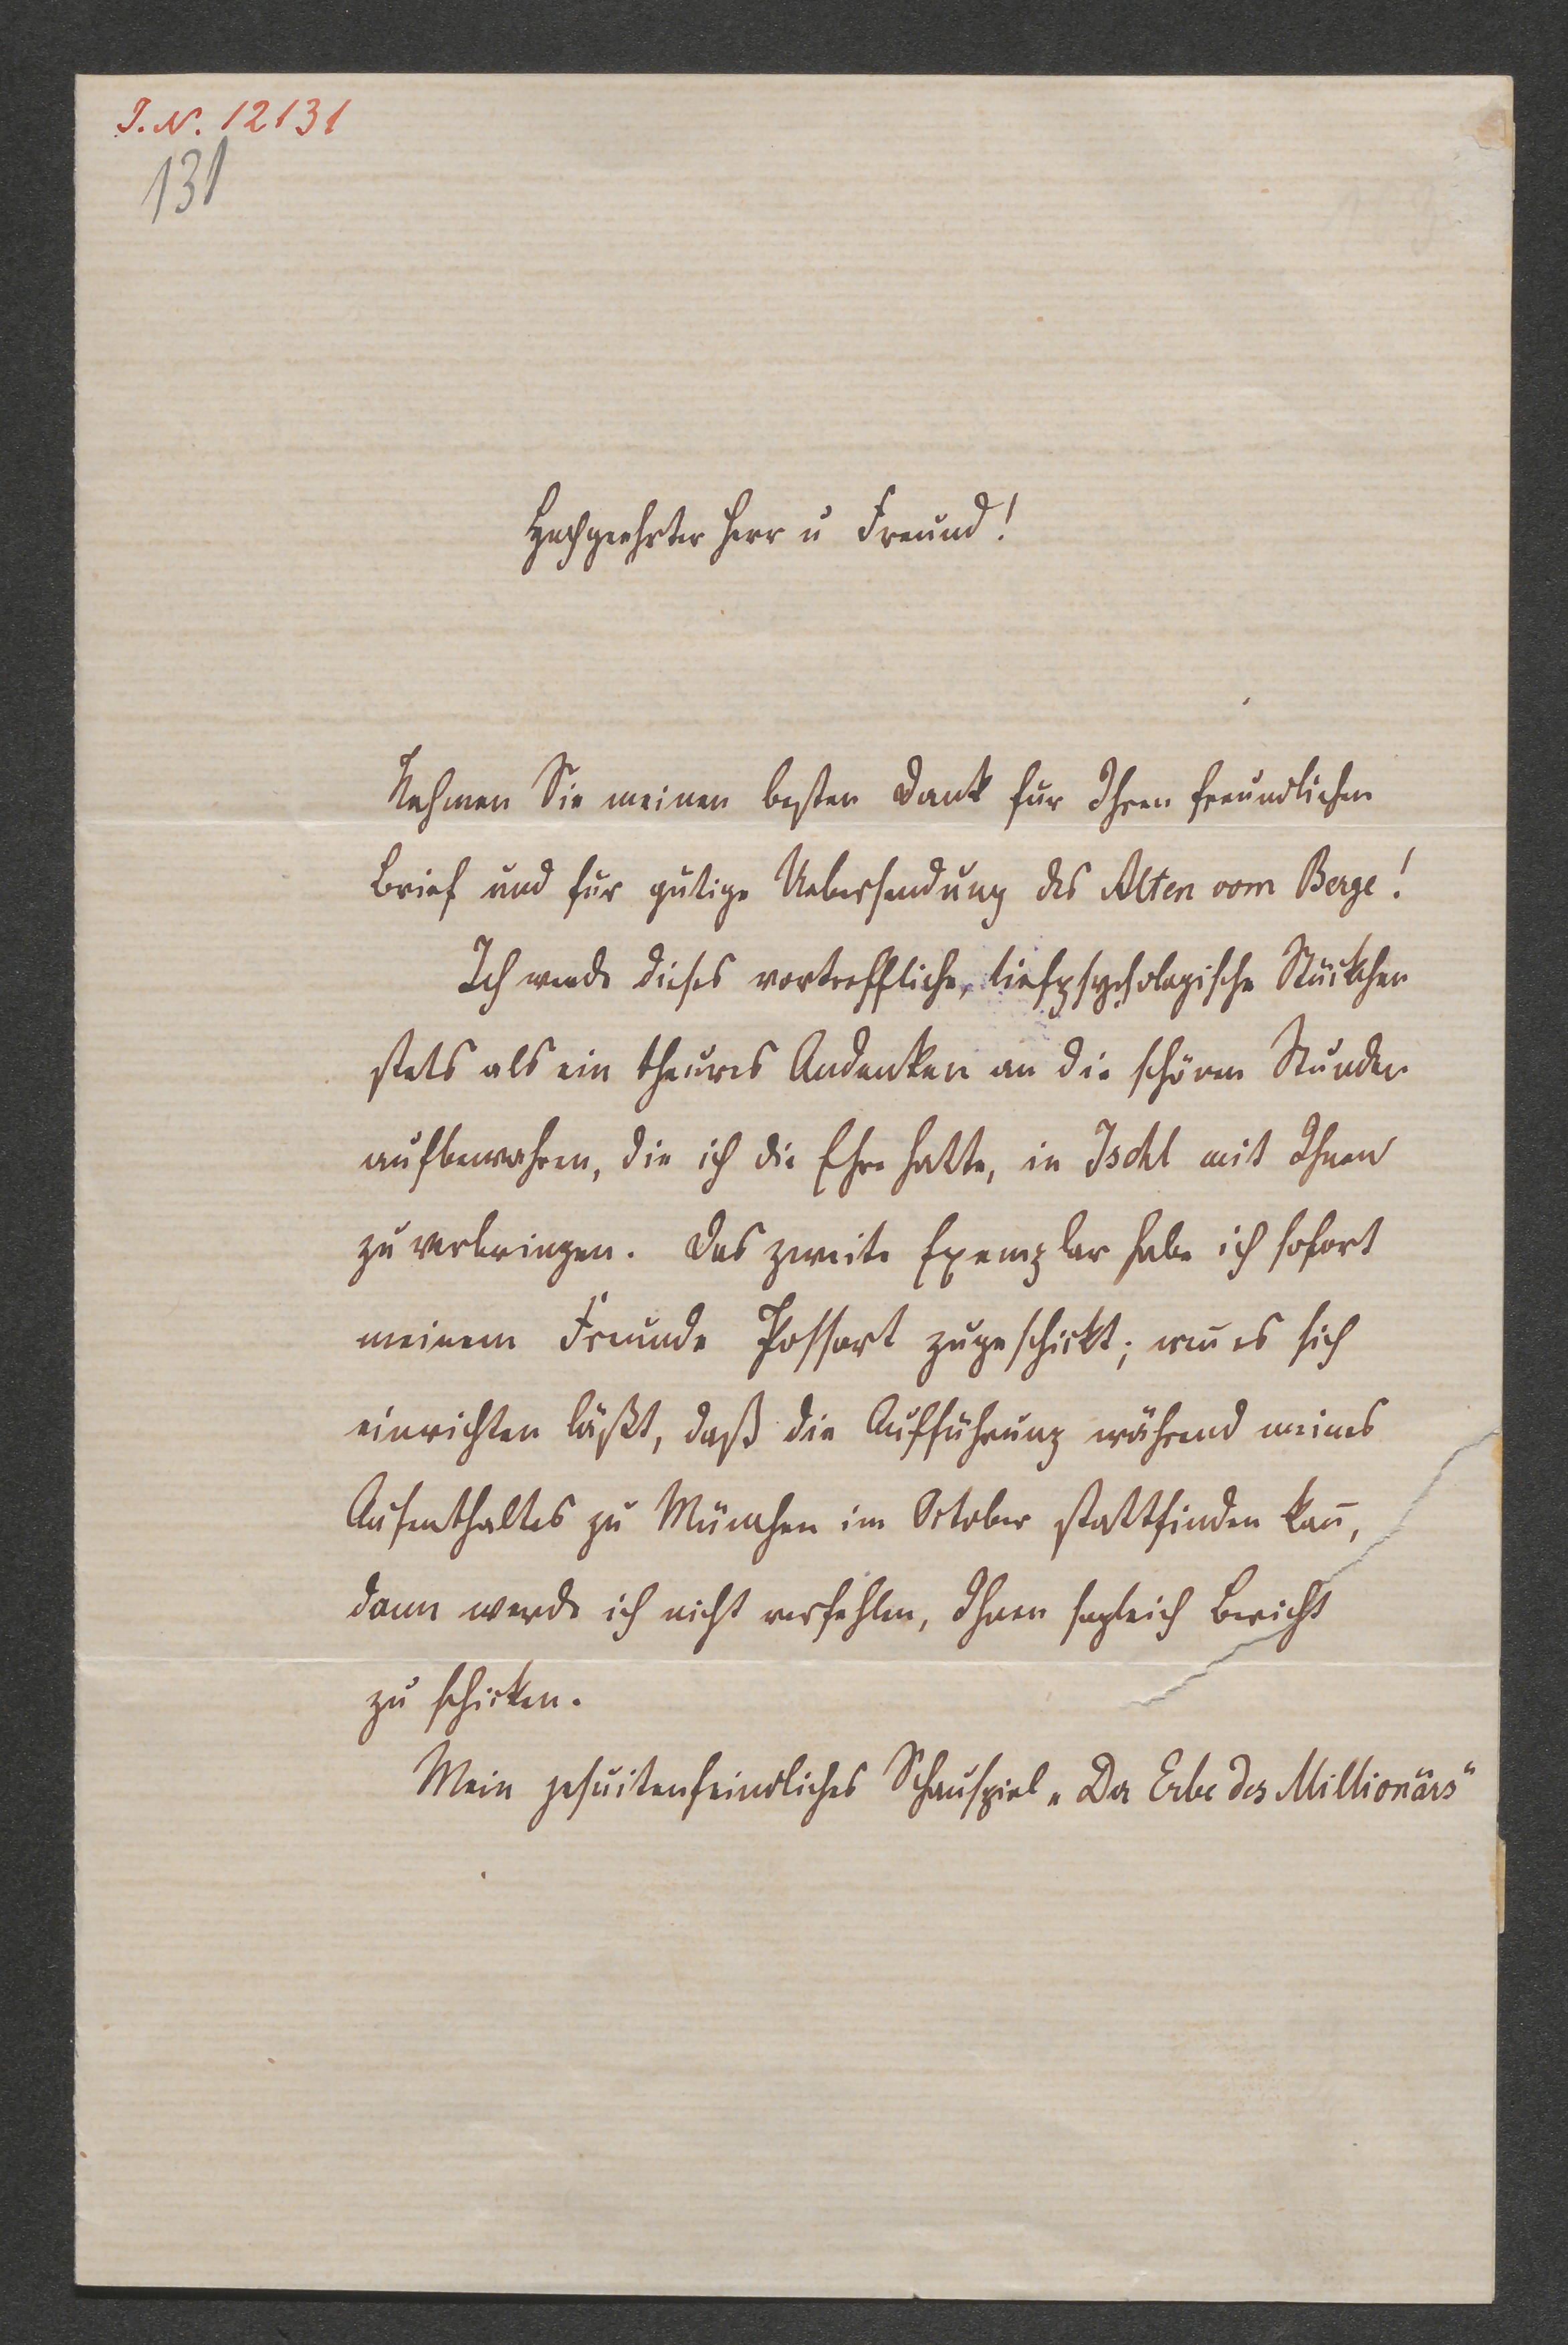 I. N. 12131
131
Hochgeehrter Herr u Freund!
Nehmen Sie meinen besten Dank für Ihren freundlichen
Brief und für gütige Uebersendung des Alten vom Berge!
Ich werde dieses vortreffliche, tiefpsychologische Stückchen
stets als ein theures Andenken an die schönen Stunden
aufbewahren, die ich die Ehre hatte, in Ischl mit Ihnen
zu verbringen. Das zweite Exemplar habe ich sofort
meinem Freunde Possart zugeschickt; wen̄ es sich
einrichten läßt, daß die Aufführung während meines
Aufenthaltes zu München im October stattfinden kan̄,
dann werde ich nicht verfehlen, Ihnen sogleich Bericht
zu schicken.
Mein jesuitenfeindliches Schauspiel „Der Erbe des Millionärs"